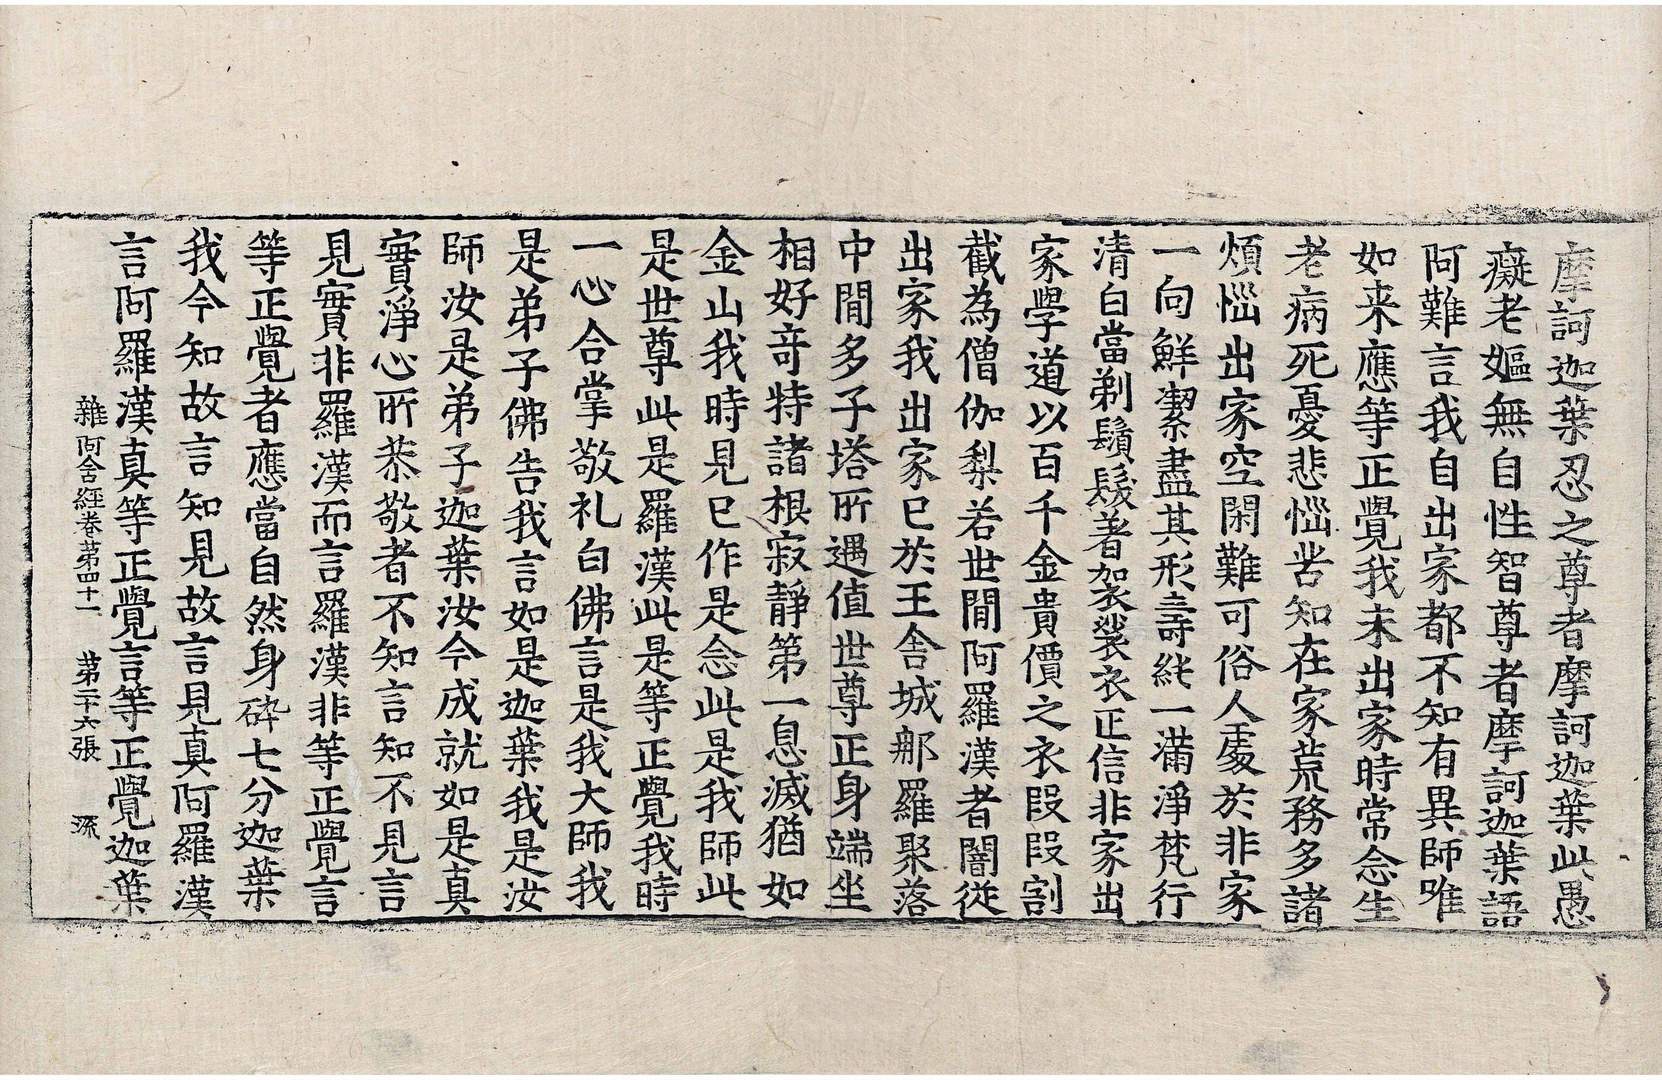 摩訶迦葉忍之尊者摩訶迦葉此愚
癡老嫗無自性智尊者摩訶迦葉語
阿難言我自出家都不知有異師唯
如来應等正覺我未出家時常念生
老病死憂悲惱苦知在家荒務多諸
煩惱出家空閑難可俗人處於非家
一向鮮潔盡其形壽純一滿淨梵行
清白當剃鬚髮著袈裟衣正信非家出
家學道以百千金貴價之衣段段割
截為僧伽梨若世閒阿羅漢者聞從
出家我出家已於王舍城那羅聚落
中閒多子塔所遇值世尊正身端坐
相好奇特諸根寂靜第一息滅猶如
金山我時見已作是念此是我師此
是世尊此是羅漢此是等正覺我時
一心合掌敬礼白佛言是我大師我
是弟子佛告我言如是迦葉我是汝
師汝是弟子迦葉汝今成就如是真
實淨心所恭敬者不知言知不見言
見實非羅漢而言羅漢非等正覺言
等正覺者應當自然身碎七分迦葉
我今知故言知見故言見真阿羅漢
言阿羅漢真等正覺言等正覺迦葉
雜阿含經卷第四十一 第二十六張 流